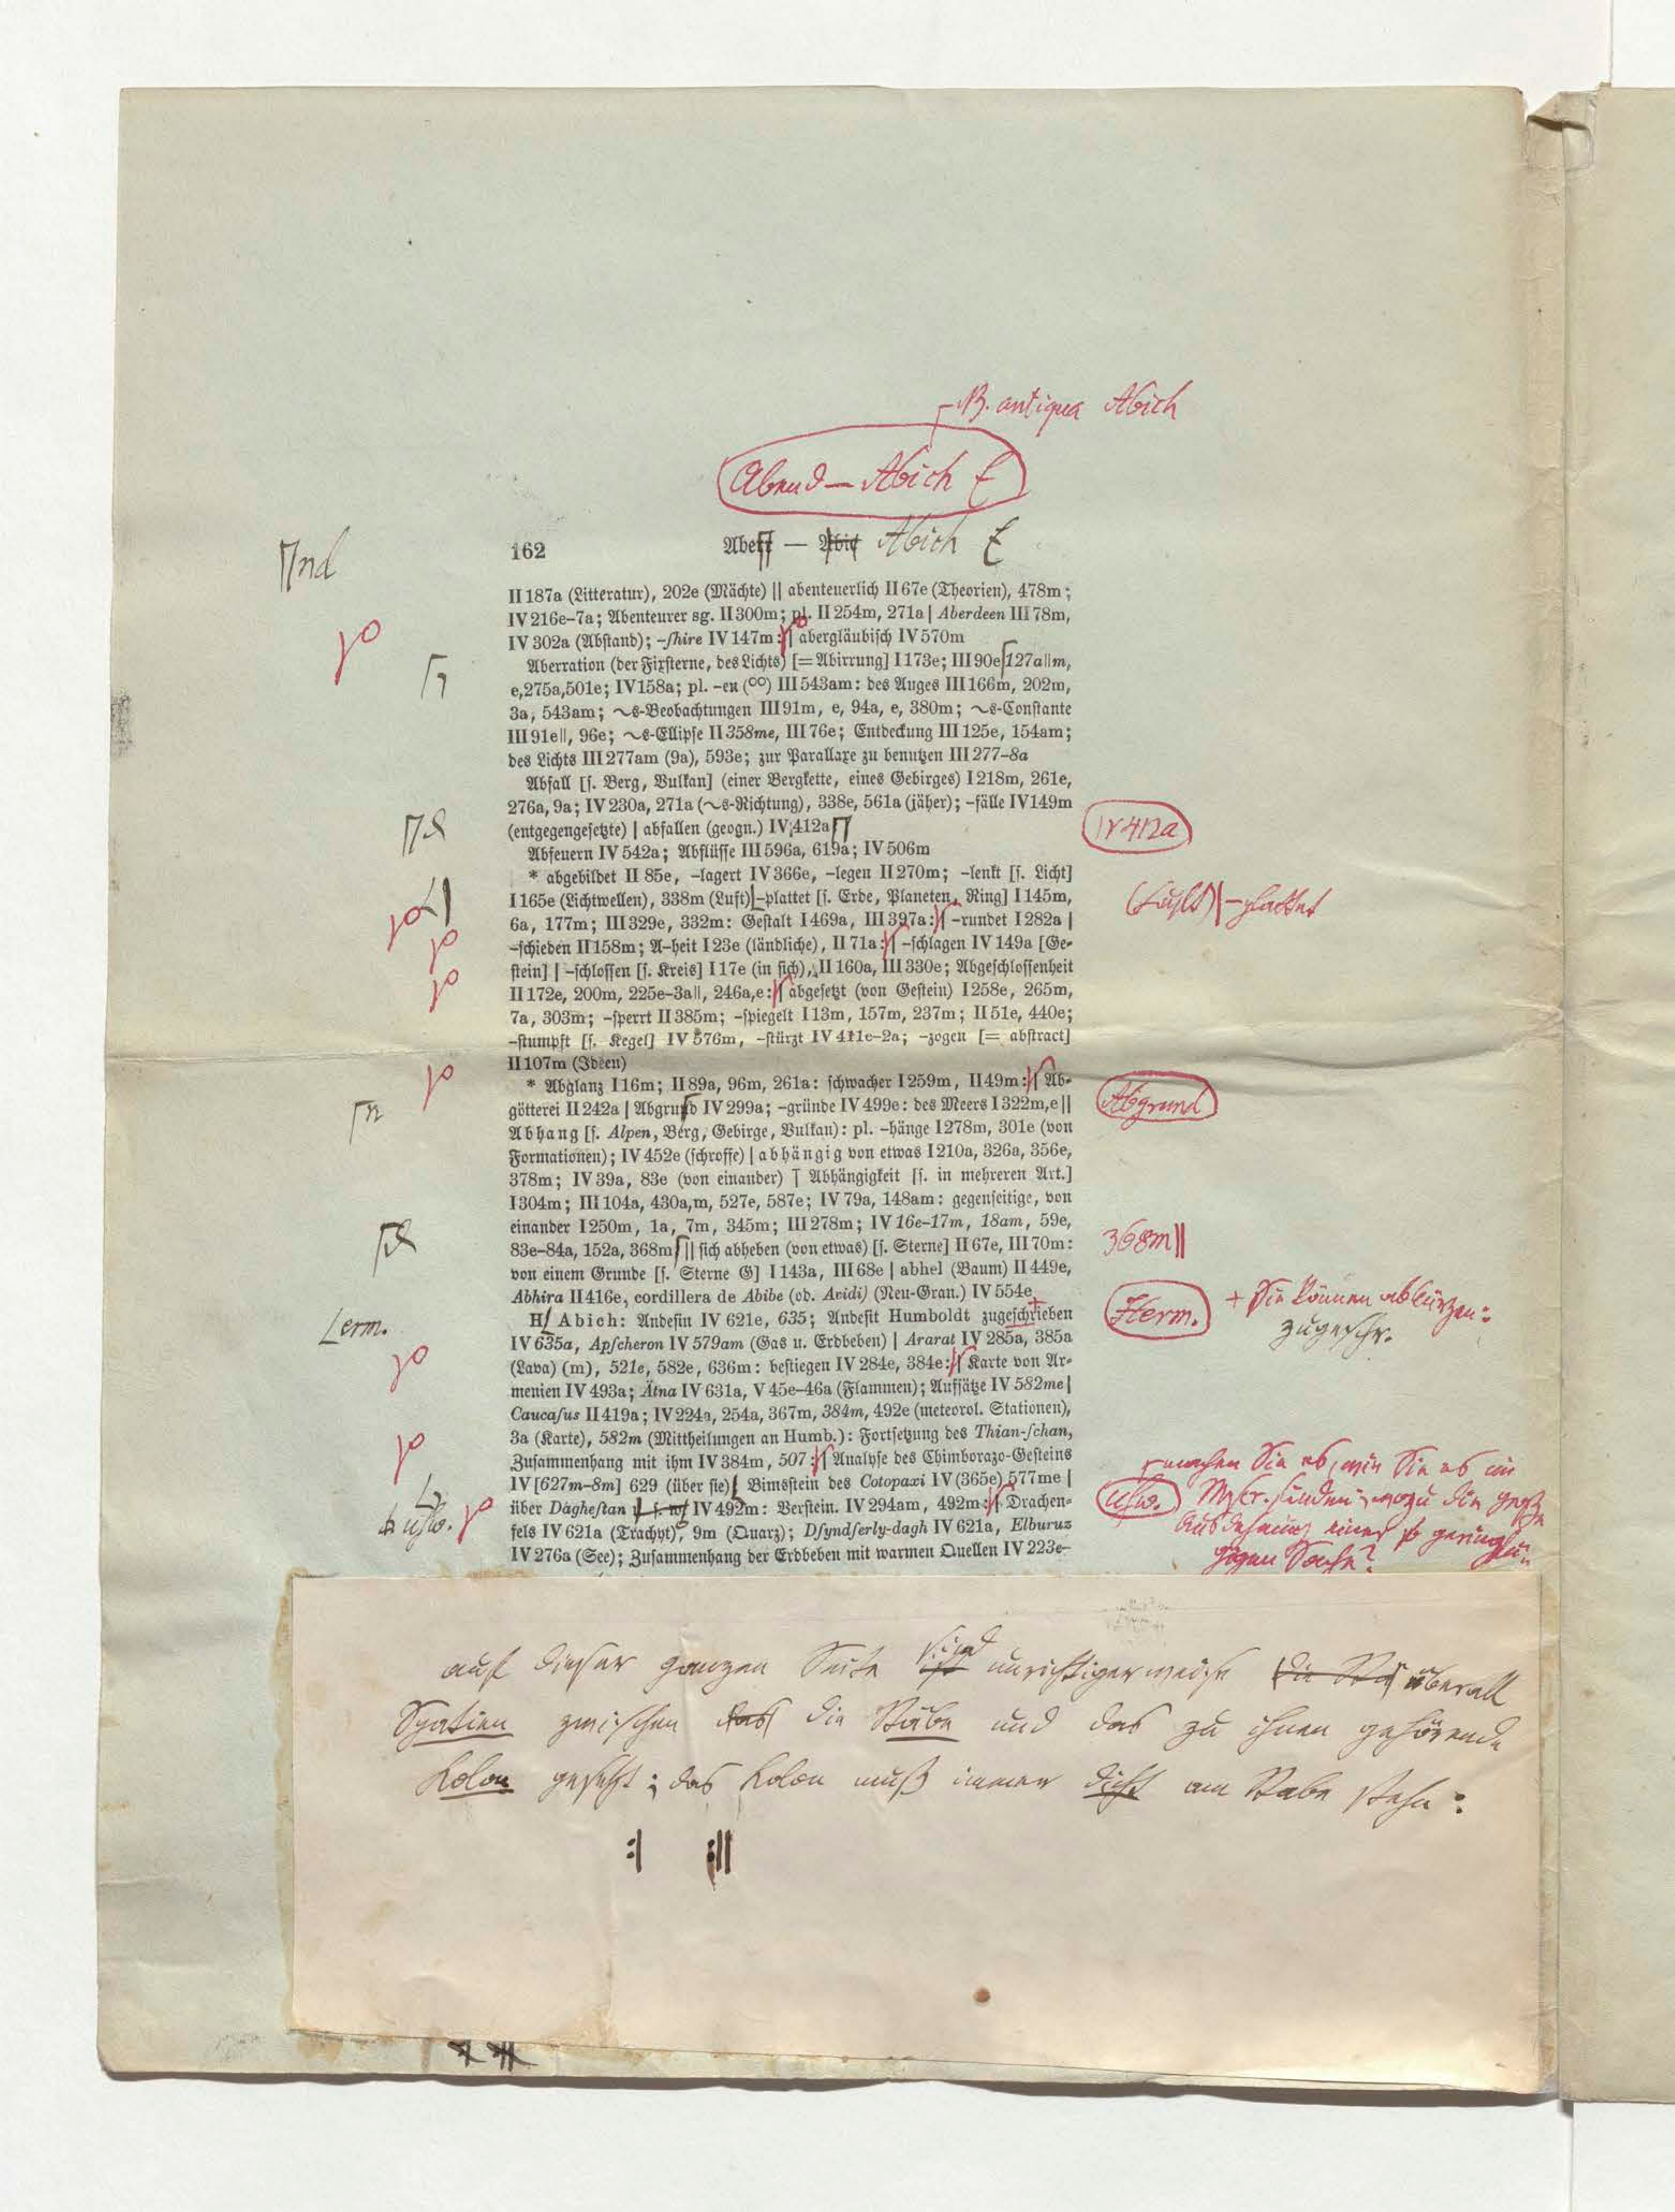 B. antiqua Abich
Abend — Abich
162 Abeſſ — Abich Abich
nd
II 187a (Litteratur), 202e (Mächte) || abenteuerlich II 67e (Theorien), 478m;
IV 216e–7a; Abenteurer sg. II 300m; pl. II 254m, 271a | Aberdeen III 78m,
IV 302a (Abſtand); –ſhire IV 147m:| abergläubiſch IV 570m
Aberration (der Fixſterne, des Lichts) [= Abirrung] I 173e; III 90e 127a||m,
e, 275a, 501e; IV 158a; pl. –en (°°) III 543am: des Auges III 166m, 202m,
3a, 543am; ~s-Beobachtungen III 91m, e, 94a, e, 380m; ~s-Conſtante
III 91e||, 96e; ~s-Ellipſe II 358me, III 76e; Entdeckung III 125e, 154am;
des Lichts III 277am (9a), 593e; zur Parallaxe zu benutzen III 277–8a
Abfall [ſ. Berg, Vulkan] (einer Bergkette, eines Gebirges) I 218m, 261e,
276a, 9a; IV 230a, 271a (~s-Richtung), 338e, 561a (jäher); –fälle IV 149m
(entgegengeſetzte) | abfallen (geogn.) IV 412a
IV 412a
Abfeuern IV 542a; Abflüſſe III 596a, 619a; IV 506m
* abgebildet II 85e, –lagert IV 366e, –legen II 270m; –lenkt [ſ. Licht]
I 165e (Lichtwellen), 338m (Luft)|–plattet [ſ. Erde, Planeten, Ring] I 145m,
(Luft)|–plattet
6a, 177m; III 329e, 332m: Geſtalt I 469a, III 397a:| –rundet I 282a |
–ſchieden II 158m; A–heit I 23e (ländliche), II 71a:| –ſchlagen IV 149a [Ge-
ſtein] | –ſchloſſen [ſ. Kreis] I 17e (in ſich), II 160a, III 330e; Abgeſchloſſenheit
II 172e, 200m, 225e–3a||, 246a,e:| abgeſetzt (von Geſtein) I 258e, 265m,
7a, 303m; –ſperrt II 385m; –ſpiegelt I 13m, 157m, 237m; II 51e, 440e;
–ſtumpft [ſ. Kegel] IV 576m, –ſtürzt IV 411e–2a; –zogen [= abſtract]
II 107m (Ideen)
* Abglanz I 16m; II 89a, 96m, 261a: ſchwacher I 259m, II 49m:| Ab-
götterei II 242a | Abgrund IV 299a; –gründe IV 499e: des Meers I 322m,e ||
Abgrund
Abhang [ſ. Alpen, Berg, Gebirge, Vulkan): pl. –hänge I 278m, 301e (von
Formationen); IV 452e (ſchroffe) | abhängig von etwas I 210a, 326a, 356e,
378m; IV 39a, 83e (von einander) | Abhängigkeit [ſ. in mehreren Art.]
I 304m; III 104a, 430a,m, 527e, 587e; IV 79a, 148am: gegenſeitige, von
einander I 250m, 1a, 7m, 345m; III 278m; IV 16e–17m, 18am, 59e,
83e–84a, 152a, 368m || ſich abheben (von etwas) [ſ. Sterne] II 67e, III 70m:
368m||
von einem Grunde [ſ. Sterne G] I 143a, III 68e | abhel (Baum) II 449e,
Abhira II 416e, cordillera de Abibe (od. Avidi) (Neu-Gran.) IV 554e
H Abich: Andeſin IV 621e, 635; Andeſit Humboldt zugeſchrieben
erm.
Herm.
+ Sie können abkürzen:
zugeſchr.
IV 635a, Apſcheron IV 579am (Gas u. Erdbeben) | Ararat IV 285a, 385a
(Lava) (m), 521e, 582e, 636m: beſtiegen IV 284e, 384e:| Karte von Ar-
menien IV 493a; Ätna IV 631a, V 45e–46a (Flammen); Aufſätze IV 582me|
Caucaſus II 419a; IV 224a, 254a, 367m, 384m, 492e (meteorol. Stationen),
3a (Karte), 582m (Mittheilungen an Humb.): Fortſetzung des Thian-ſchan,
Zuſammenhang mit ihm IV 384m, 507:| Analyſe des Chimborazo-Geſteins
IV [627m–8m] 629 (über ſie) Bimsſtein des Cotopaxi IV (365e) 577me |
über Dagheſtan IV 492m: Berſtein. IV 294am, 492m:| Drachen-
uſw.
uſw.
machen Sie es, wie Sie es im
Mſcr. finden; wozu die große
Ausdehnung einer ſo gering
Sache?
fels IV 621a (Trachyt), 9m (Quarz); Dſyndſerly-dagh IV 621a, Elburuz
IV 276a (See); Zuſammenhang der Erdbeben mit warmen Quellen IV 223e–
auf dieſer ganzen Seite ſind unrichtigerweiſe überall
Spatien zwiſchen die Stäbe und das zu ihnen gehörende
Kolon geſetzt; das Kolon muß immer dicht am Stabe ſtehn:
:| :||